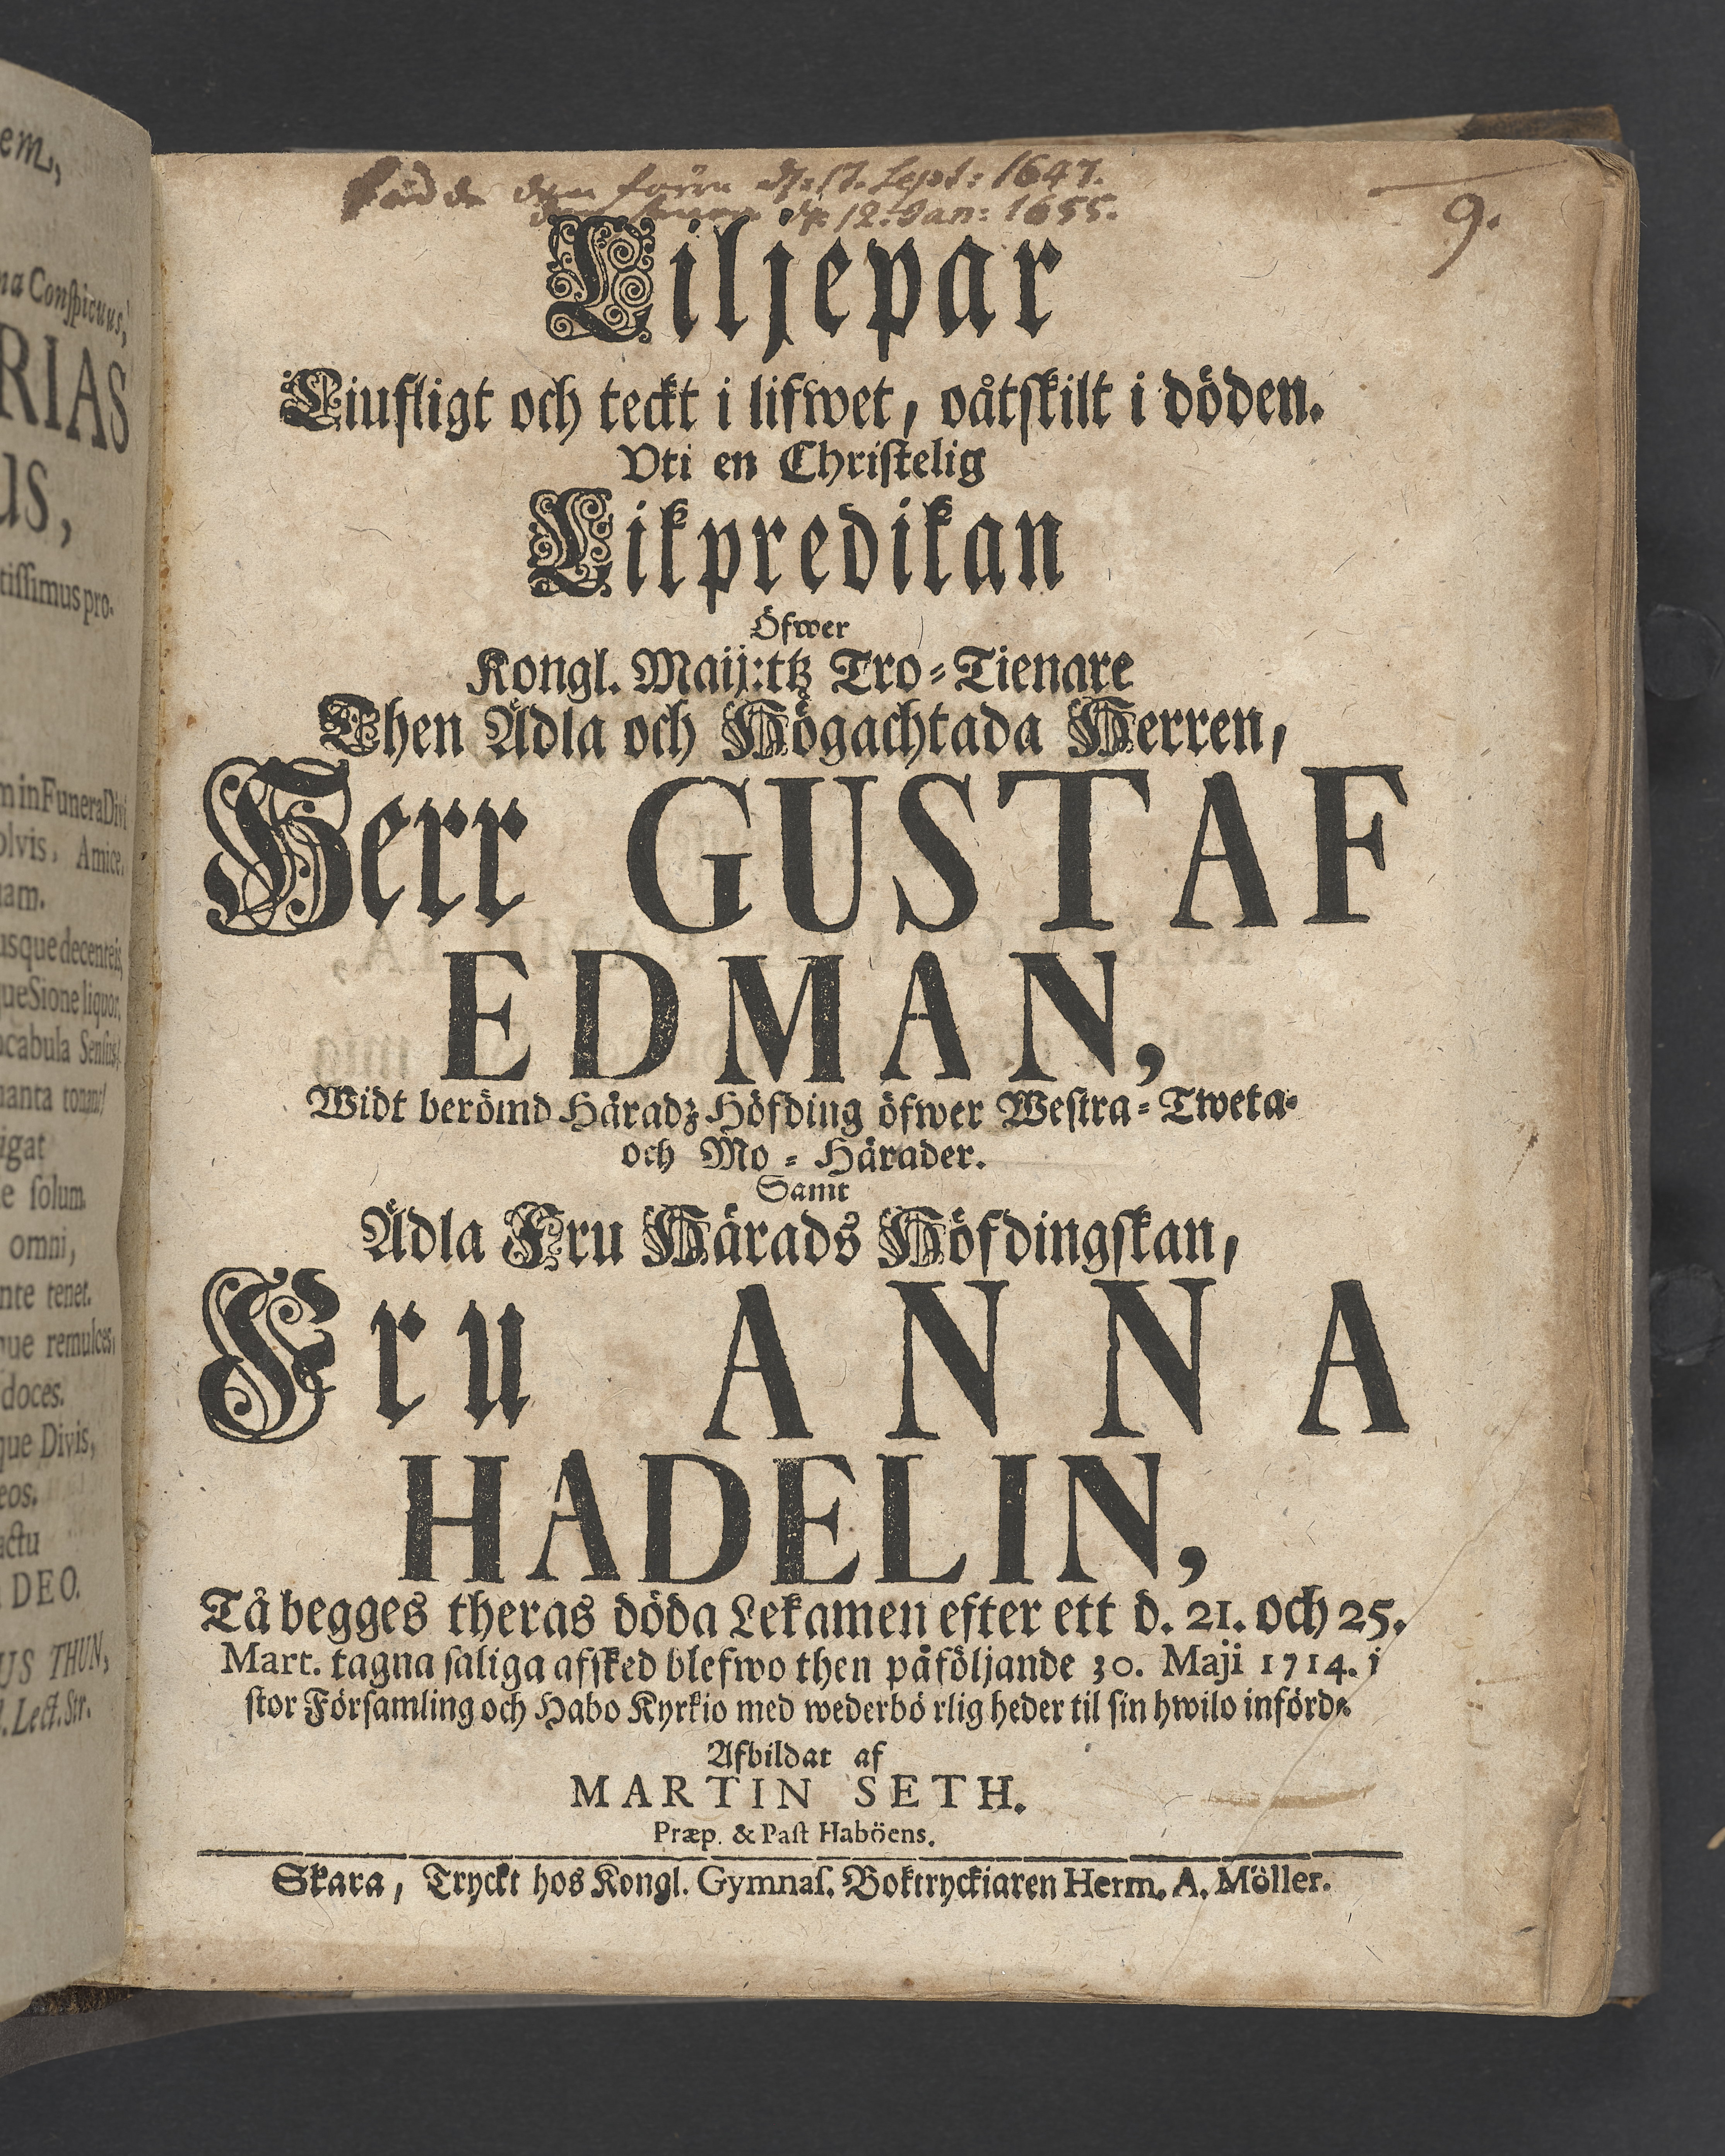 em,
na Conspicuus,
RIAS
us,
tissimus pro-
m in Funera Divi
olvis, Amice,
uam.
usque decenteis,
ueSione liquor,
ocabula Sensus,
nanta tonant
igat
e solum.
omni,
nte tenet.
que remulces,
doces.
que Divis,
eos.
actu
DEO.
US THUN,
Lect. Str.
Sept: 1647.
12. Jan: 1655.
9.
Liljepar
Liufligt och teckt i lifwet, oåtskilt i döden.
Vti en Christelig
Likpredikan
Öfwer
Kongl. Maij:tz Tro-Tienare
Then Ädla och Högachtada Herren,
Herr GUSTAF
EDMAN,
Widt berömd Häradz-Höfding öfwer Westra-Tweta-
och Mo-Härader.
Samt
Ädla Fru Härads Höfdingskan,
Fru ANNA
HADELIN,
Tå begges theras döda Lekamen efter ett d. 21. och 25.
Mart. tagna saliga afsked blefwo then påföljande 30. Maji 1714. i
stor Församling och Habo Kyrkio med wederbörlig heder til sin hwilo införde.
Afbildat af
MARTIN SETH.
Præp. & Past Haböens.
Skara, Tryckt hos Kongl. Gymnas. Boktryckiaren Herm. A. Möller.